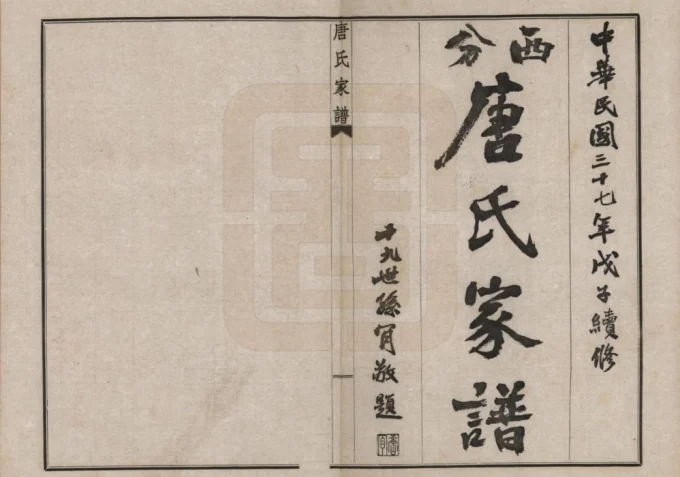 中華民國三十七年戊子續修
西分
唐氏家譜
十九世孫肎敬題
唐氏家譜